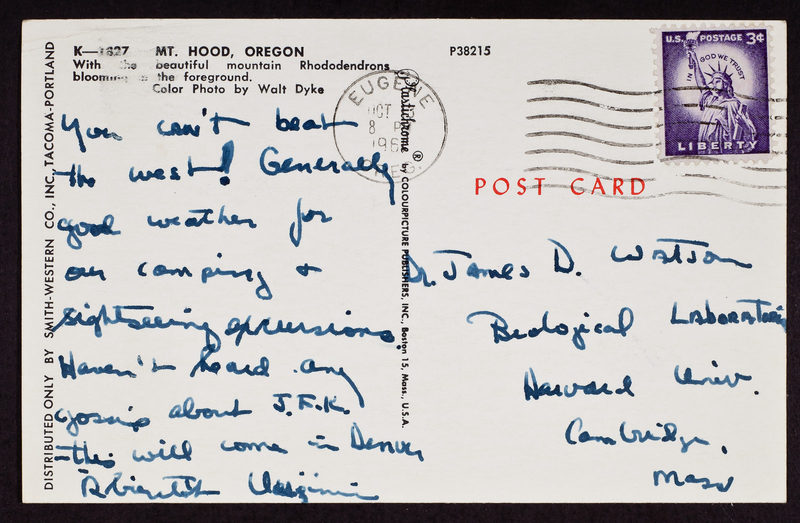 K—1827 MT. HOOD, OREGON
With the beautiful mountain Rhododendrons
blooming in the foreground.
Color Photo by Walt Dyke
P38215
DISTRIBUTED ONLY BY SMITH-WESTERN CO., INC., TACOMA-PORTLAND
You can't beat
the west! Generally
good weather for
our camping +
sightseeing excursions.
Haven't heard any
gossip about J.F.K.
—this will come in Denver
Virginia
Plastichrome ® by COLOURPICTURE PUBLISHERS, INC., Boston 15, Mass., U.S.A.
EUGENE
OCT
8 P
196
U.S. POSTAGE 3¢
IN GOD WE TRUST
LIBERTY
POST CARD
Dr. James D. Watson
Biological Laboratories
Harvard Univ.
Cambridge,
Mass